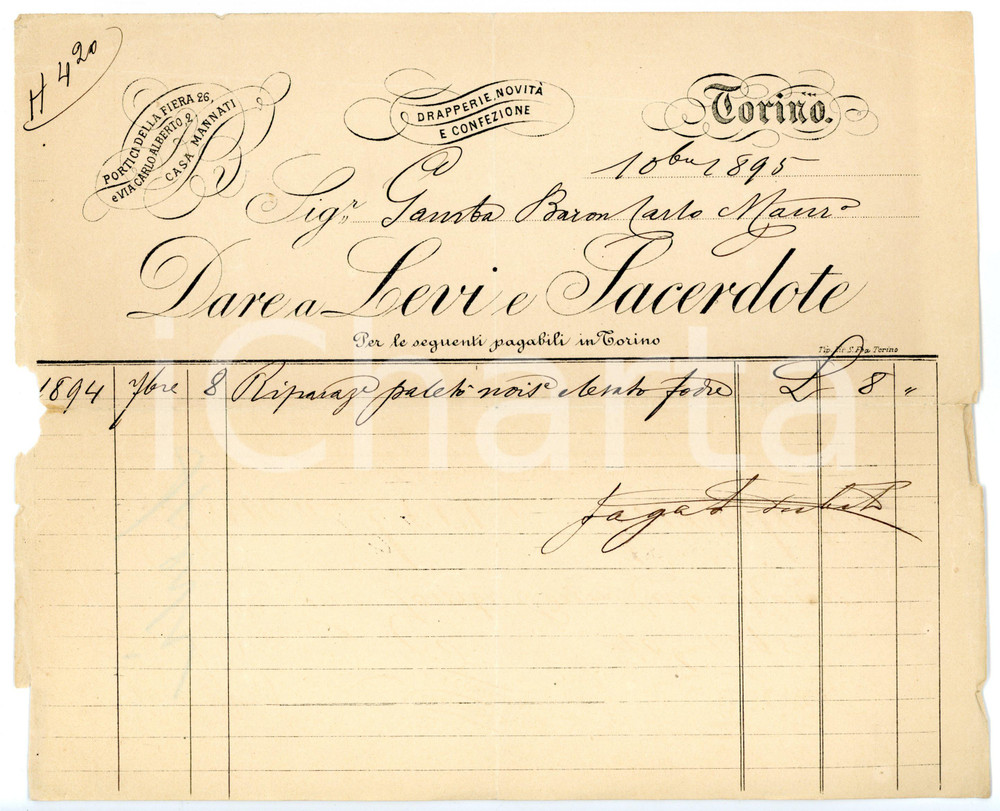 H 420
PORTICI DELLA FIERA 26,
e VIA CARLO ALBERTO 2
CASA MANNATI
DRAPPERIE, NOVITÀ
E CONFEZIONE
Torino.
10bre 1895
Sigr. Gamba Baron Carlo Mauro
Dare a Levi e Sacerdote
Per le seguenti pagabili in Torino
Torino
1894 7bre 8 Riparaze paletò fodre L 8 "
iCharta